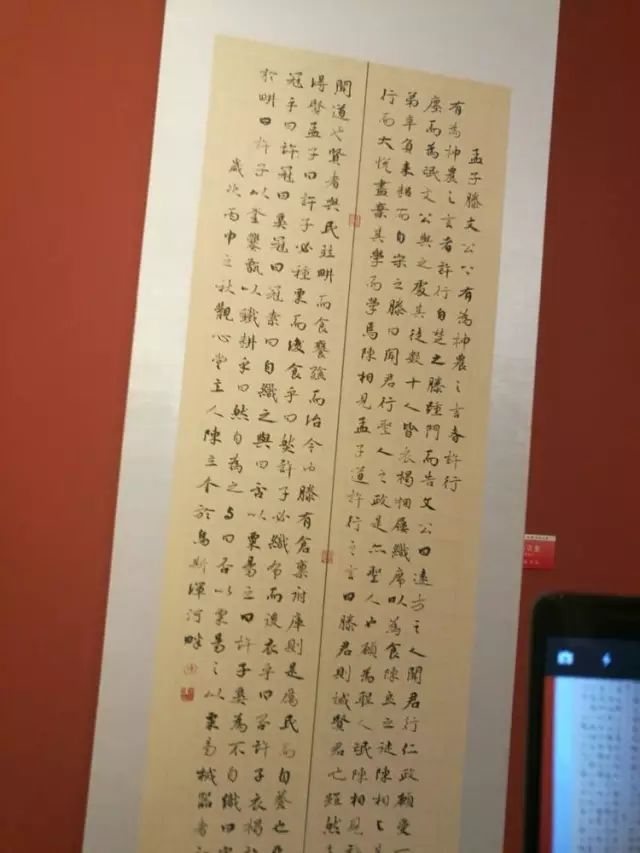 孟子滕文公公有為神農之言者許行
有為神農之言者許行自楚之滕踵門而告文公曰遠方之人聞君行仁政願受一
廛而為氓文公與之處其徒數十人皆衣褐捆屨織席以為食陳良之徒陳相
弟辛負耒耜而自宋之滕曰聞君行聖人之政是亦聖人也願為聖人氓陳相見
行而大悅盡棄其學而學焉陳相見孟子道許行之言曰滕君則誠賢君也雖然
聞道也賢者與民並耕而食饔飧而治今也滕有倉廩府庫則是厲民而自養也
得賢孟子曰許子必種粟而後食乎曰然許子必織布而後衣乎曰否許子衣褐
冠乎曰許冠曰奚冠曰冠素曰自織之與曰否以粟易之曰許子奚為不自織曰
於耕曰許子以釜爨甑以鐵耕乎曰然自為之与曰否以粟易之以粟易械器者
歲次丙申之秋觀心堂主人陳立个於烏斯渾河畔